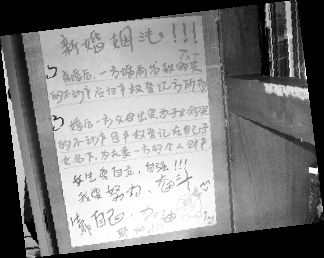 新婚姻法!!!
①离婚后,一方婚前贷款购买
的不动产应归产权登记方所有
②婚后一方父母出资为子女购买
的不动产且产权登记在自己子
女名下,为夫妻一方的个人财产
女生要自立,自强!!!
我要努力、奋斗
靠自己,加油